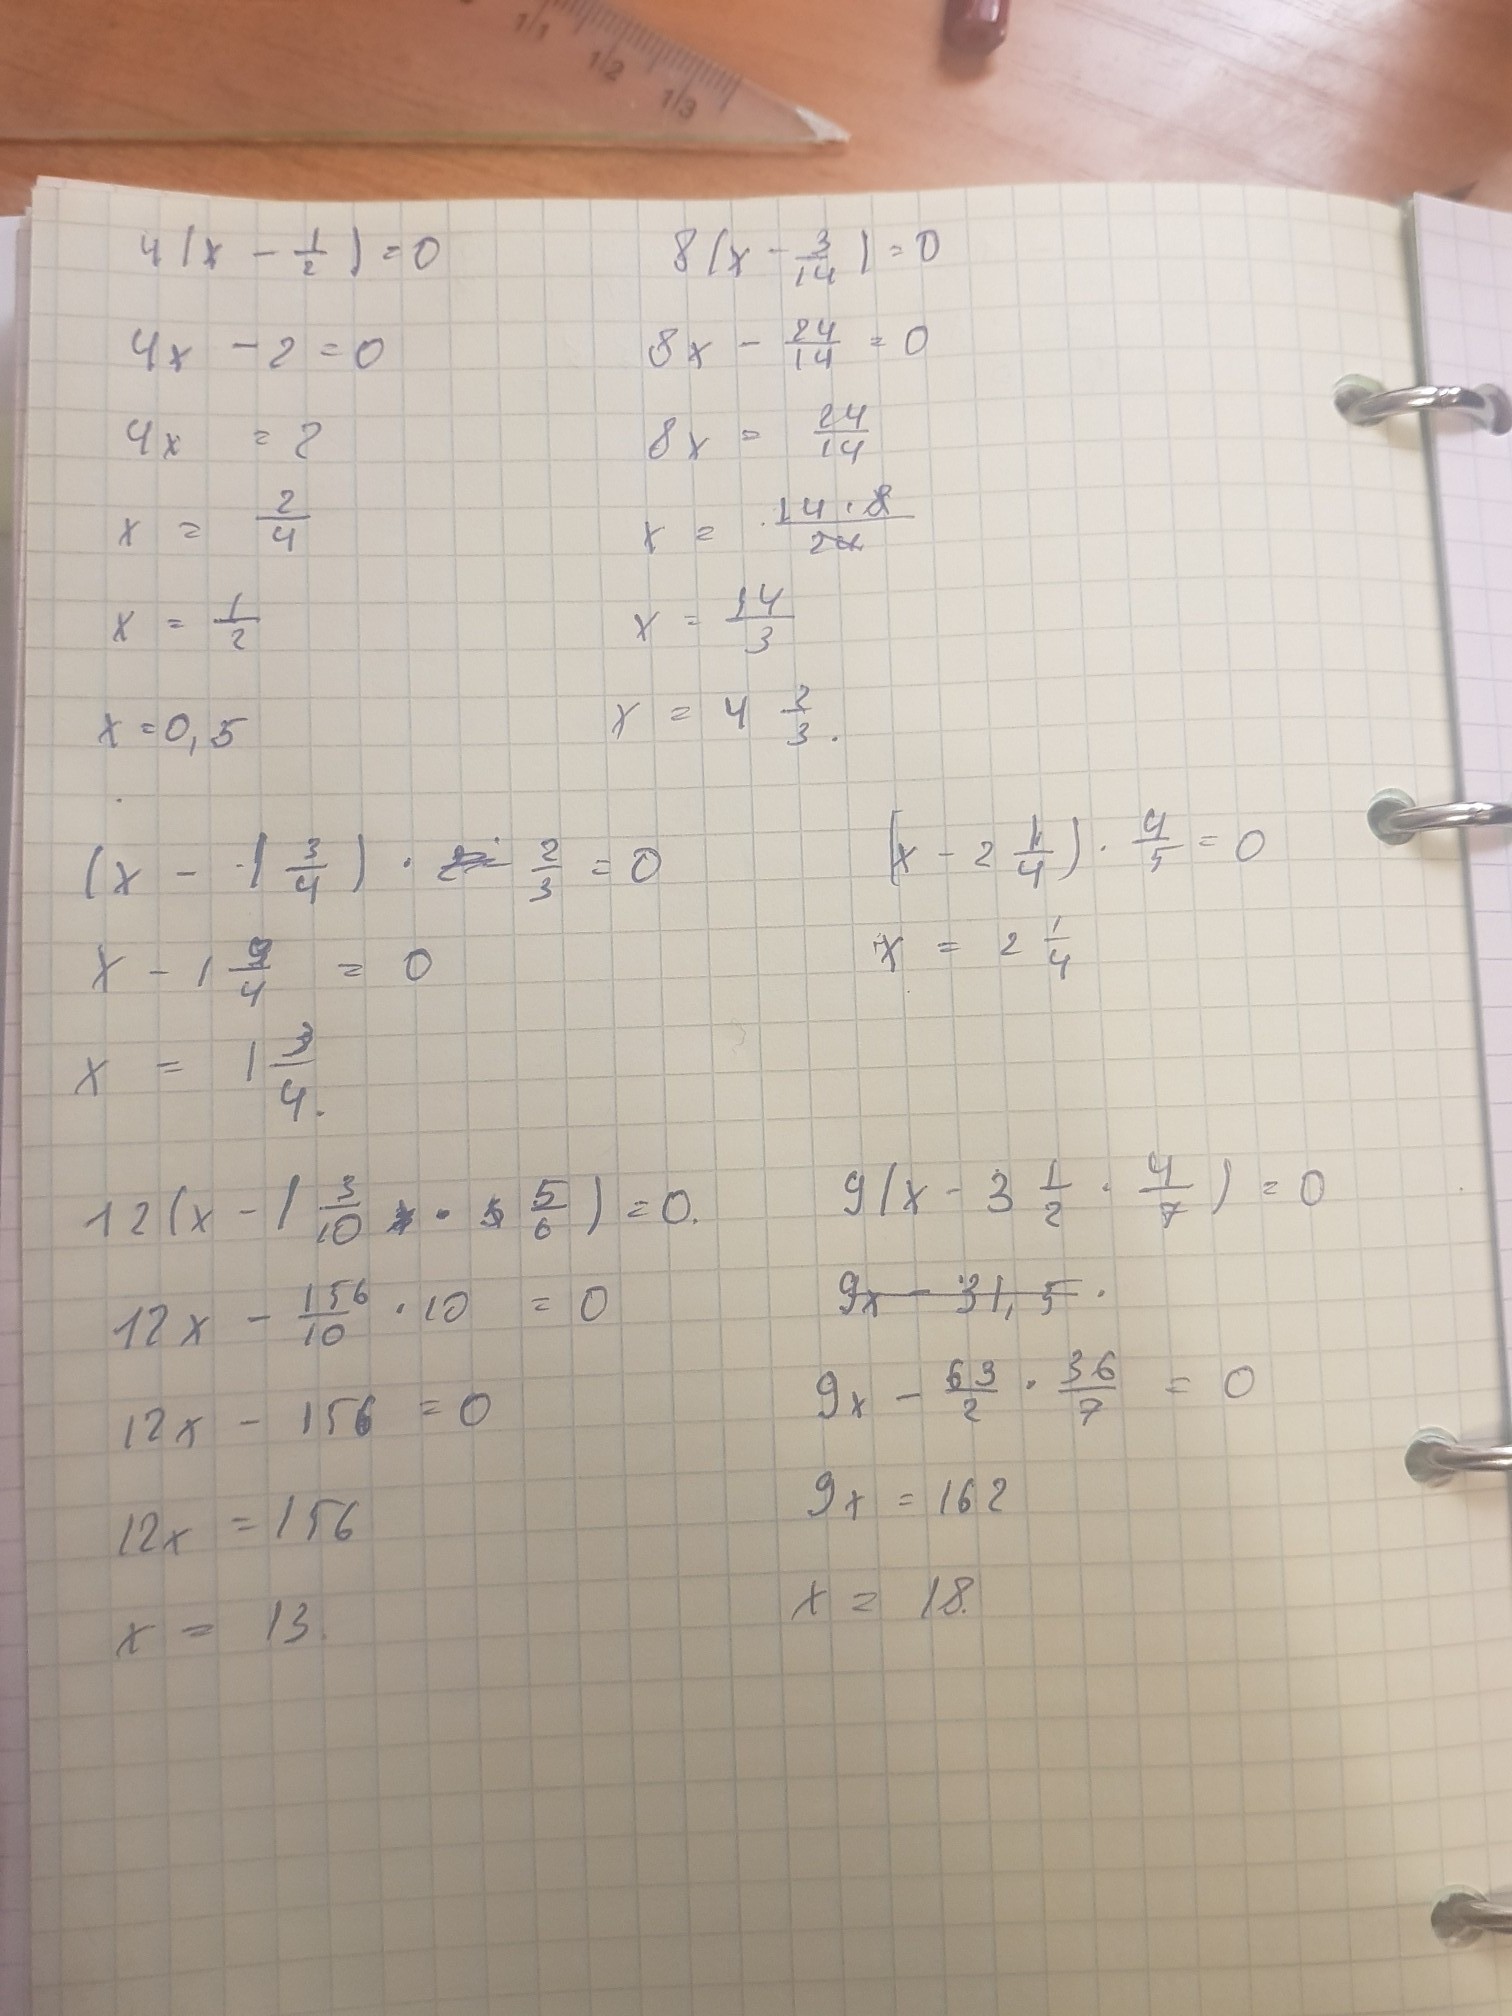 1/1 1/2 1/3
4(x - 1/2) = 0
4x - 2 = 0
4x = 2
x = 2/4
x = 1/2
x = 0,5
8(x - 3/14) = 0
8x - 24/14 = 0
8x = 24/14
x = 14·8/24
x = 14/3
x = 4 2/3.
(x - 1 3/4) · 2/3 = 0
x - 1 3/4 = 0
x = 1 3/4.
(x - 2 1/4) · 4/5 = 0
x = 2 1/4
12(x - 1 3/10 · 5/6) = 0.
12x - 156/10 · 10 = 0
12x - 156 = 0
12x = 156
x = 13.
9(x - 3 1/2 · 4/7) = 0
9x - 31,5 ·
9x - 63/2 · 36/7 = 0
9x = 162
x = 18.